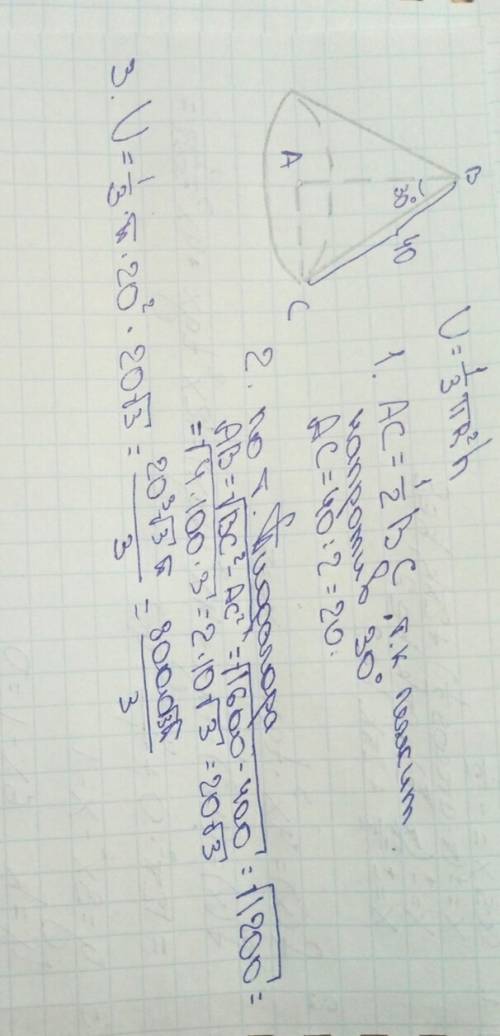 B
30°
40
A
C
V = 1/3 πR²h
1. AC = 1/2 BC, т.к лежит
напротив 30°
AC = 40 : 2 = 20.
2. по т. Пифагора
AB = √BC² - AC² = √1600 - 400 = √1200 =
= √4 · 100 · 3 = 2 · 10√3 = 20√3
3. V = 1/3 · π · 20² · 20√3 = 20³√3 π / 3 = 8000√3π / 3